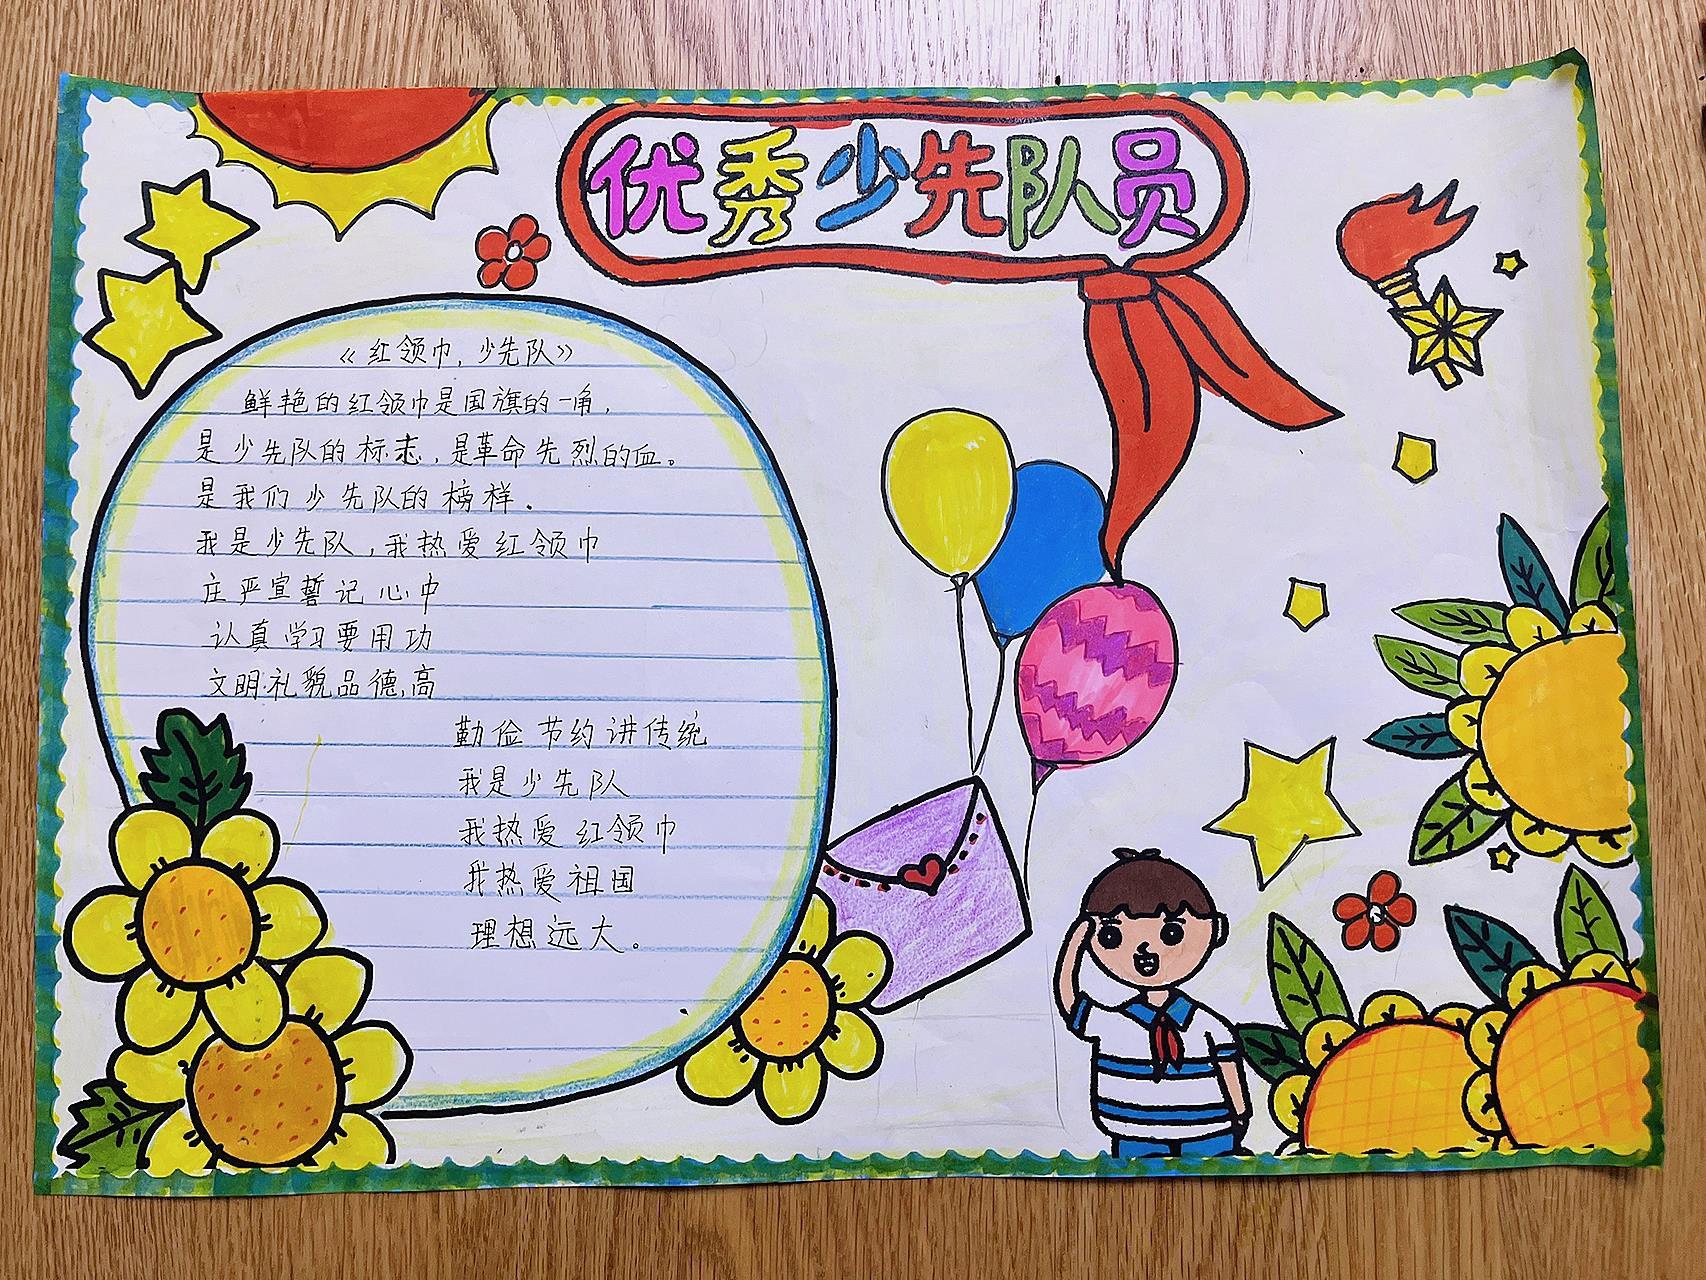 优秀少先队员
《红领巾,少先队》
鲜艳的红领巾是国旗的一角,
是少先队的标志,是革命先烈的血。
是我们少先队的榜样.
我是少先队,我热爱红领巾
庄严宣誓记心中
认真学习要用功
文明礼貌品德高
勤俭节约讲传统
我是少先队
我热爱红领巾
我热爱祖国
理想远大。